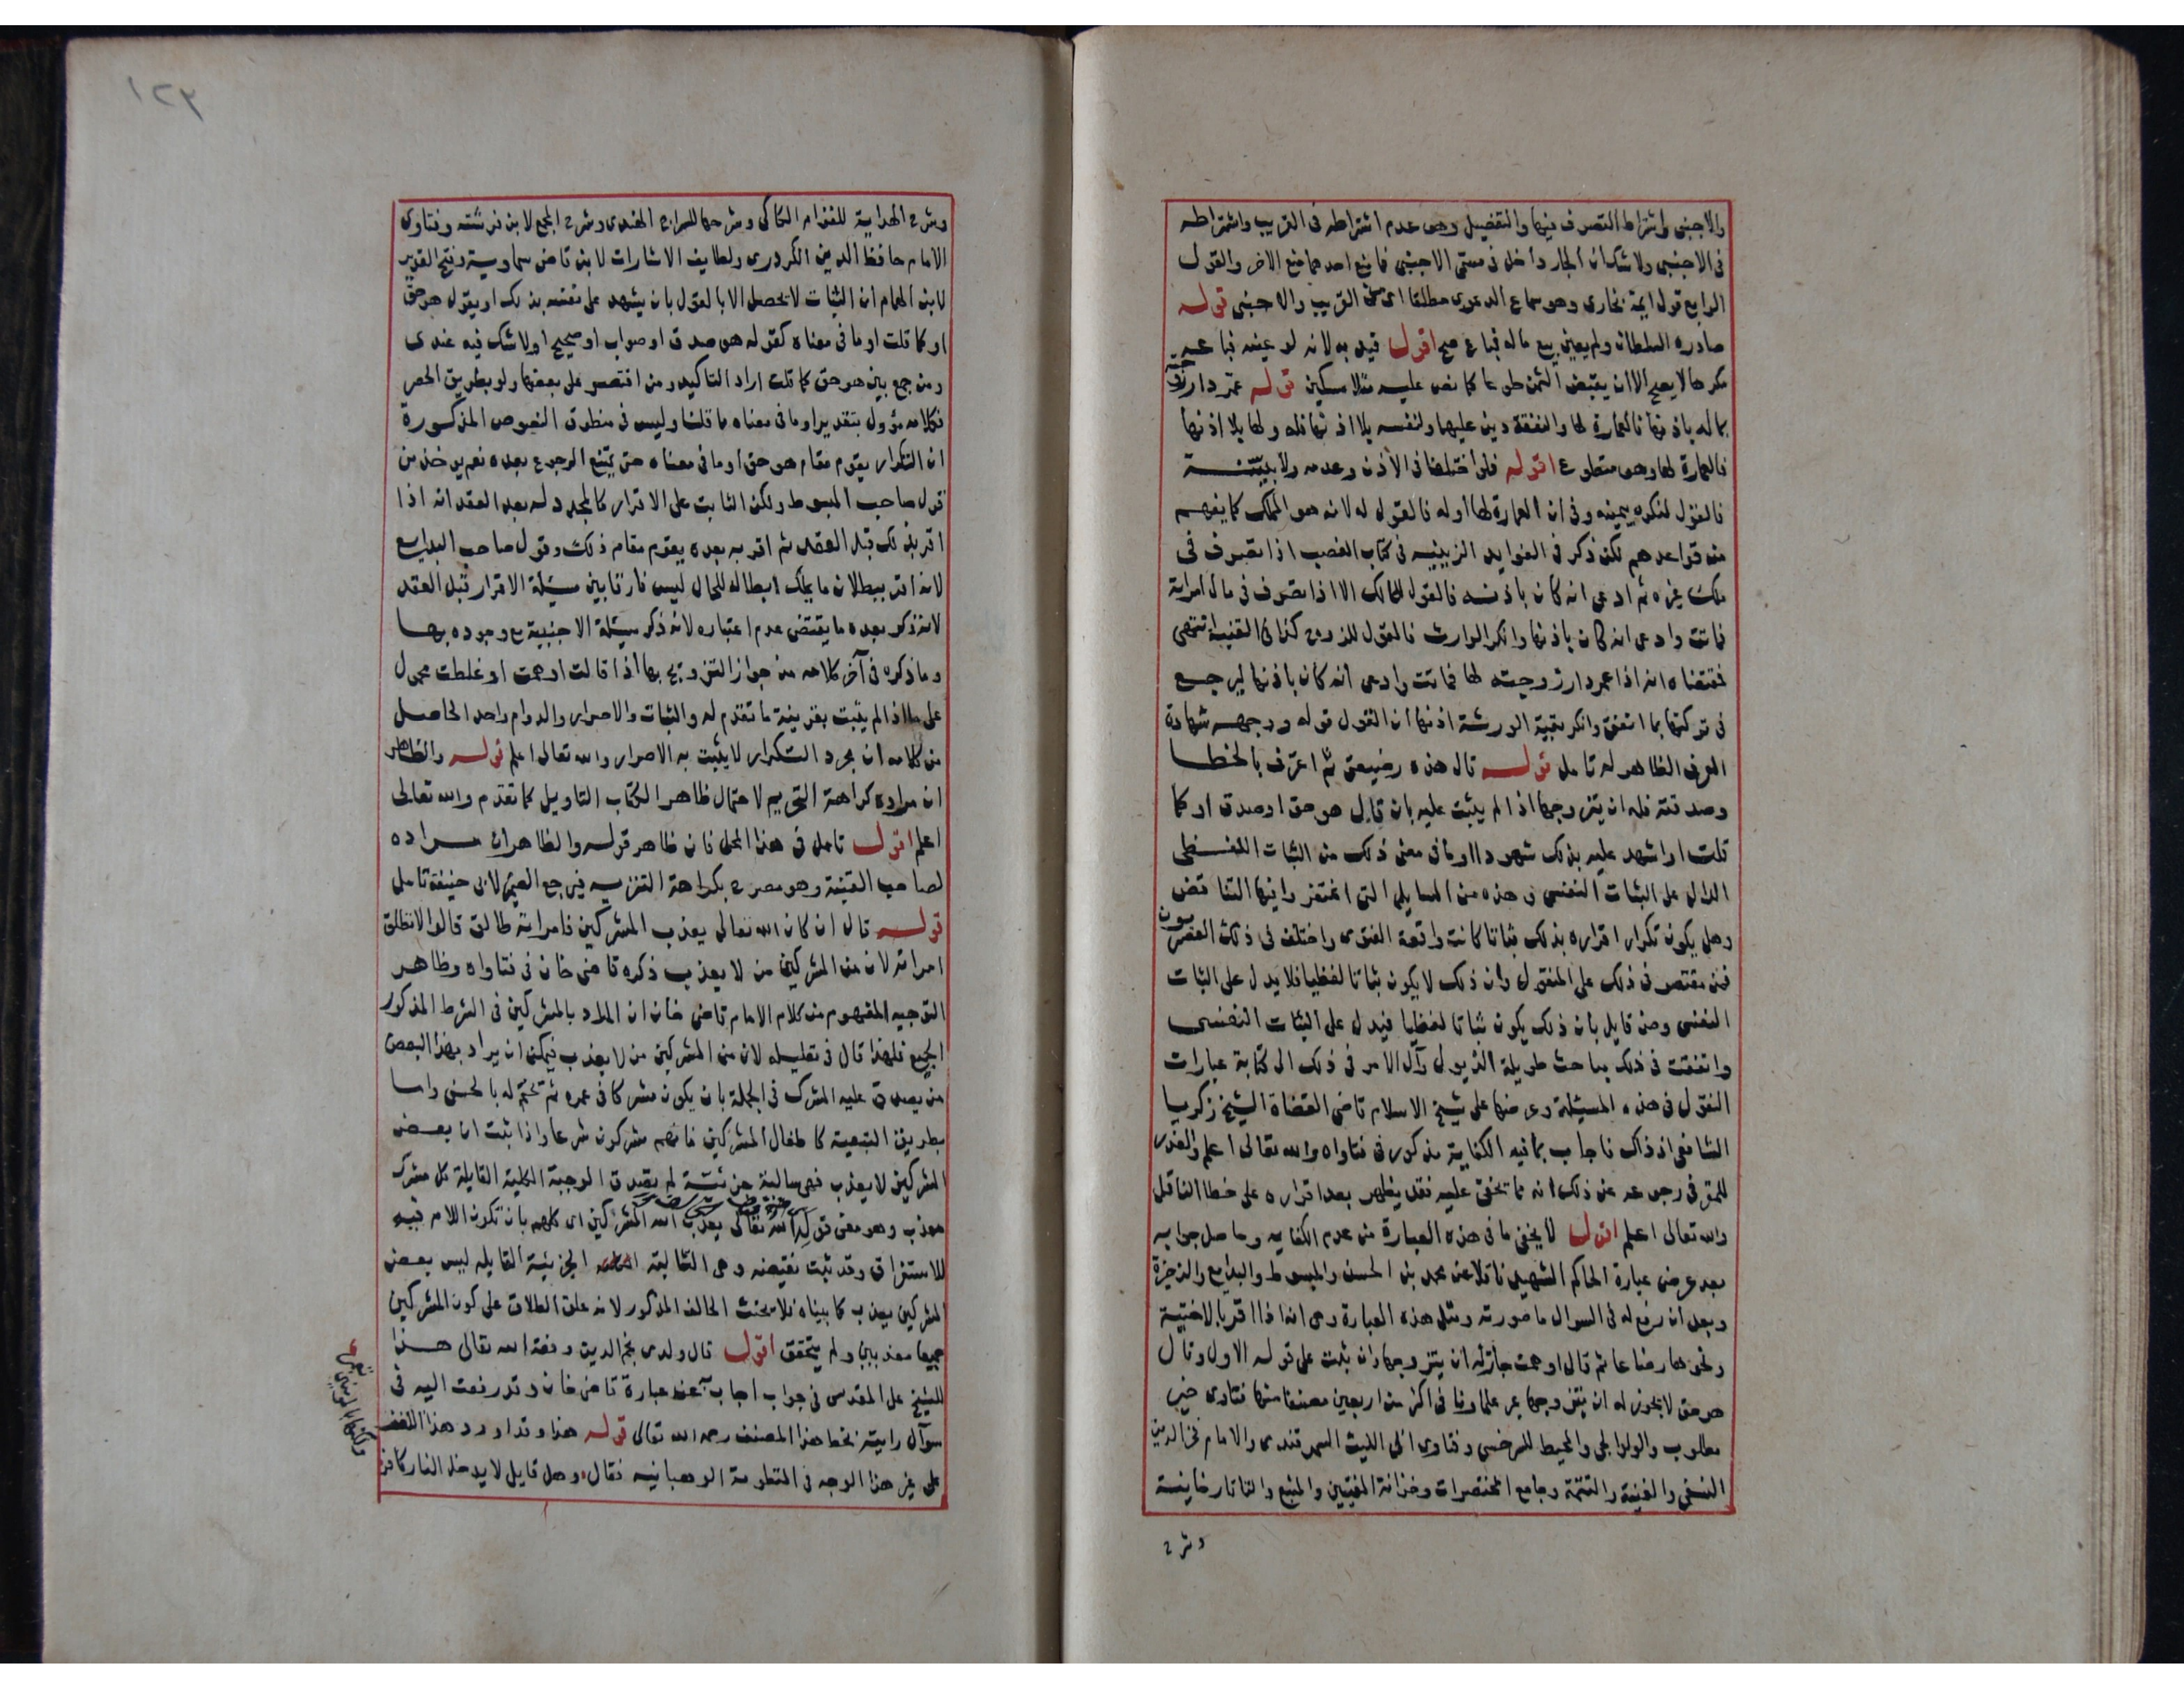 والاجنبى واشتراط التصرف فيها والتفصيل وهى عدم اشتراطه فى القريب واشتراطه
فى الاجنبى ولاشك ان الجار داخل فى مسمى الاجنبى فانع احدهما منع الاخر والقول
الرابع قول ايمة بخارى وهو سماع الدعوى مطلقا اى من القريب والاجنبى قوله
صادره السلطان ولم يعين بيع ماله فباع صح اقول قيد به لانه لو عينه فباعه
مكرها لا يصح الا ان يقبض الثمن طوعا كما نص عليه منلا مسكين قوله عمر دار زوجته
بماله باذنها فالعمارة لها والنفقة دين عليها ولنفسه بلا اذنها فله ولها بلا اذنها
فالعمارة لها وهو متطوع اقوله فلو اختلفا فى الاذن وعدمه ولا بينــة
فالقول لمنكره بيمينه وفى ان العمارة لها اوله فالقول له لانه هو المملك كما يفهم
من قواعدهم لكن ذكر فى الفوايد الزينيه فى كتاب الغصب اذا تصرف فى
ملك غيره ثم ادعى انه كان باذنه فالقول للمالك الا اذا تصرف فى مال امراته
فماتت وادعى انه كان باذنها وانكر الوارث فالقول للزوج كذا فى القنية انتهى
فمقتضاه انه اذا عمر دار زوجته لها فماتت وادعى انه كان باذنها ليرجع
فى تركتها بما انفق وانكر بقية الورثة اذنها ان القول قوله ووجهه شهادة
العرف الظاهر له تامل قوله قال هذه رضيعتى ثم اعترف بالخطا
وصدقته فله ان يتزوجها اذا لم يثبت عليه بان قال هو حق او صدق او كما
قلت او اشهد عليه بذلك شهودا او ما فى معنى ذلك من الثبات اللفظى
الدال على الثبات النفسى وهذه من المسايل التى اغتفروا فيها التناقض
وهل يكون تكرار اقراره بذلك ثباتا كانت واقعة الفتوى واختلف فى ذلك العصريون
فمن مقتصر فى ذلك على المنقول وان ذلك لا يكون ثباتا لفظيا فلا يدل على الثبات
النفسى ومن قايل بان ذلك يكون ثباتا لفظيا فيدل على الثبات النفسى
واتفقت فى ذلك مباحث طويلة الذيول وآل الامر فى ذلك الى كتابة عبارات
النقول فى هذه المسئلة وعرضها على شيخ الاسلام قاضى القضاة الشيخ زكريا
الشافعى اذ ذاك فاجاب بما فيه الكفاية مذكور فى فتاواه والله تعالى اعلم والعذر
للمقر فى رجوعه عن ذلك انه مما يخفى عليه فقد يظهر بعد اقراره على خطا الناقل
والله تعالى اعلم اقول لا يخفى ما فى هذه العبارة من عدم الكفايه وحاصل جوابه
بعد عرض عبارة الحاكم الشهيد ناقلا عن محمد بن الحسن والمبسوط والبدايع والذخيرة
وبعد ان رفع له فى السوال ما صورته ومثل هذه العبارة وهى انه اذا اقر بالاختية
ونحوها رضاعا ثم قال اوهمت جاز له ان يتزوجها وان ثبت على قوله الاول وقال
هو حق لا يجوز له ان يتزوجها عبر علماونا فى اكثر من اربعين مصنفا منها فتاوى خير
مطلوب والولوالجى والمحيط للسرخسى وفتاوى ابى الليث السمرقندى والامام فخر الدين
النسفى والغنية والتتمة وجامع المختصرات وخزانة المفتيين والمنبع والتاتارخانية
وشرح
٣٢١
وشرح الهداية للقوام الكاكى وشرحها للسراج الهندى وشرح المجمع لابن فرشته وفتاوى
الامام حافظ الدين الكردرى ولطايف الاشارات لابن قاضى سماوية وفتح القدير
لابن الهمام ان الثبات لا يحصل الا بالقول بان يشهد على نفسه بذلك او يقول هو حق
او كما قلت او ما فى معناه كقوله هو صدق او صواب او صحيح او لا شك فيه عندى
ومن جمع بين هو حق كما قلت اراد التاكيد ومن اقتصر على بعضها ولو بطريق الحصر
فكلامه مؤول بتقدير او ما فى معناه مما قلنا وليس فى منطوق النصوص المذكورة
ان التكرار يقوم مقام هو حق او ما فى معناه حتى يمتنع الرجوع بعده نعم يوخذ من
قول صاحب المبسوط ولكن الثابت على الاقرار كالمجدد له بعد العقد انه اذا
اقر بذلك قبل العقد ثم اقر به بعده يقوم مقام ذلك وقول صاحب البدايع
لانه اقر ببطلان ما يملك ابطاله للحال ليس فارقا بين مسيلة الاقرار قبل العقد
لانه ذكر بعده ما يقتضى عدم اعتباره لانه ذكر مسيلة الاجنبية مع وجوده بها
وما ذكره فى آخر كلامه من جواز التزويج بها اذا قالت اوهمت او غلطت محمول
على ما اذا لم يثبت بقرينة ما تقدم له والثبات والاصرار والدوام واحد الحاصل
من كلامه ان مجرد التكرار لا يثبت به الاصرار والله تعالى اعلم قوله والظاهر
ان مراده كراهة التحريم لاحتمال ظاهر الكتاب التاويل كما تقدم والله تعالى
اعلم اقول تامل فى هذا المحل فان ظاهر قوله والظاهر ان مراده
لصاحب القنية وهو مصرح بكراهة التنزيه فيرجع الضمير لابى حنيفة تامل
قوله قال ان كان الله تعالى يعذب المشركين فامراته طالق قالوا لا تطلق
امراته لان من المشركين من لا يعذب ذكره قاضى خان فى فتاواه وظاهر
التوجيه المفهوم من كلام الامام قاضى خان ان المراد بالمشركين فى الشرط المذكور
الجميع فلهذا قال فى تعليله لان من المشركين من لا يعذب فيمكن ان يراد بهذا البعض
من يصدق عليه المشرك فى الجملة بان يكون مشركا فى عمره ثم تختم له بالحسنى واما
بطريق التبعية كاطفال المشركين فانهم مشركون شرعا واذا ثبت ان بعض
المشركين لا يعذب فهى سالبة جزئية لم تصدق الموجبة الكلية القايلة كل مشرك
معذب وهو معنى قوله الله تعالى يعذب الله المشركين اى كلهم بان تكون اللام فيه
للاستغراق وقد ثبت نقيضه وهى السالبة الجزئية القايله ليس بعض
المشركين يعذب كما بيناه فلا يحنث الحالف المذكور لانه علق الطلاق على كون المشركين
جميعا معذبين ولم يتحقق اقول قال ولدى نجم الدين وفقه الله تعالى هذا
للشيخ على المقدسى فى جواب اجاب عنه عبارة قاضى خان وقد رفعت اليه فى
سوآل رايته بخط هذا المصنف رحمه الله تعالى قوله هذا وقد اورد هذا اللفظ
على غير هذا الوجه فى المنظومة الوهبانيه فقال وهل قايل لا يدخل النار كافر